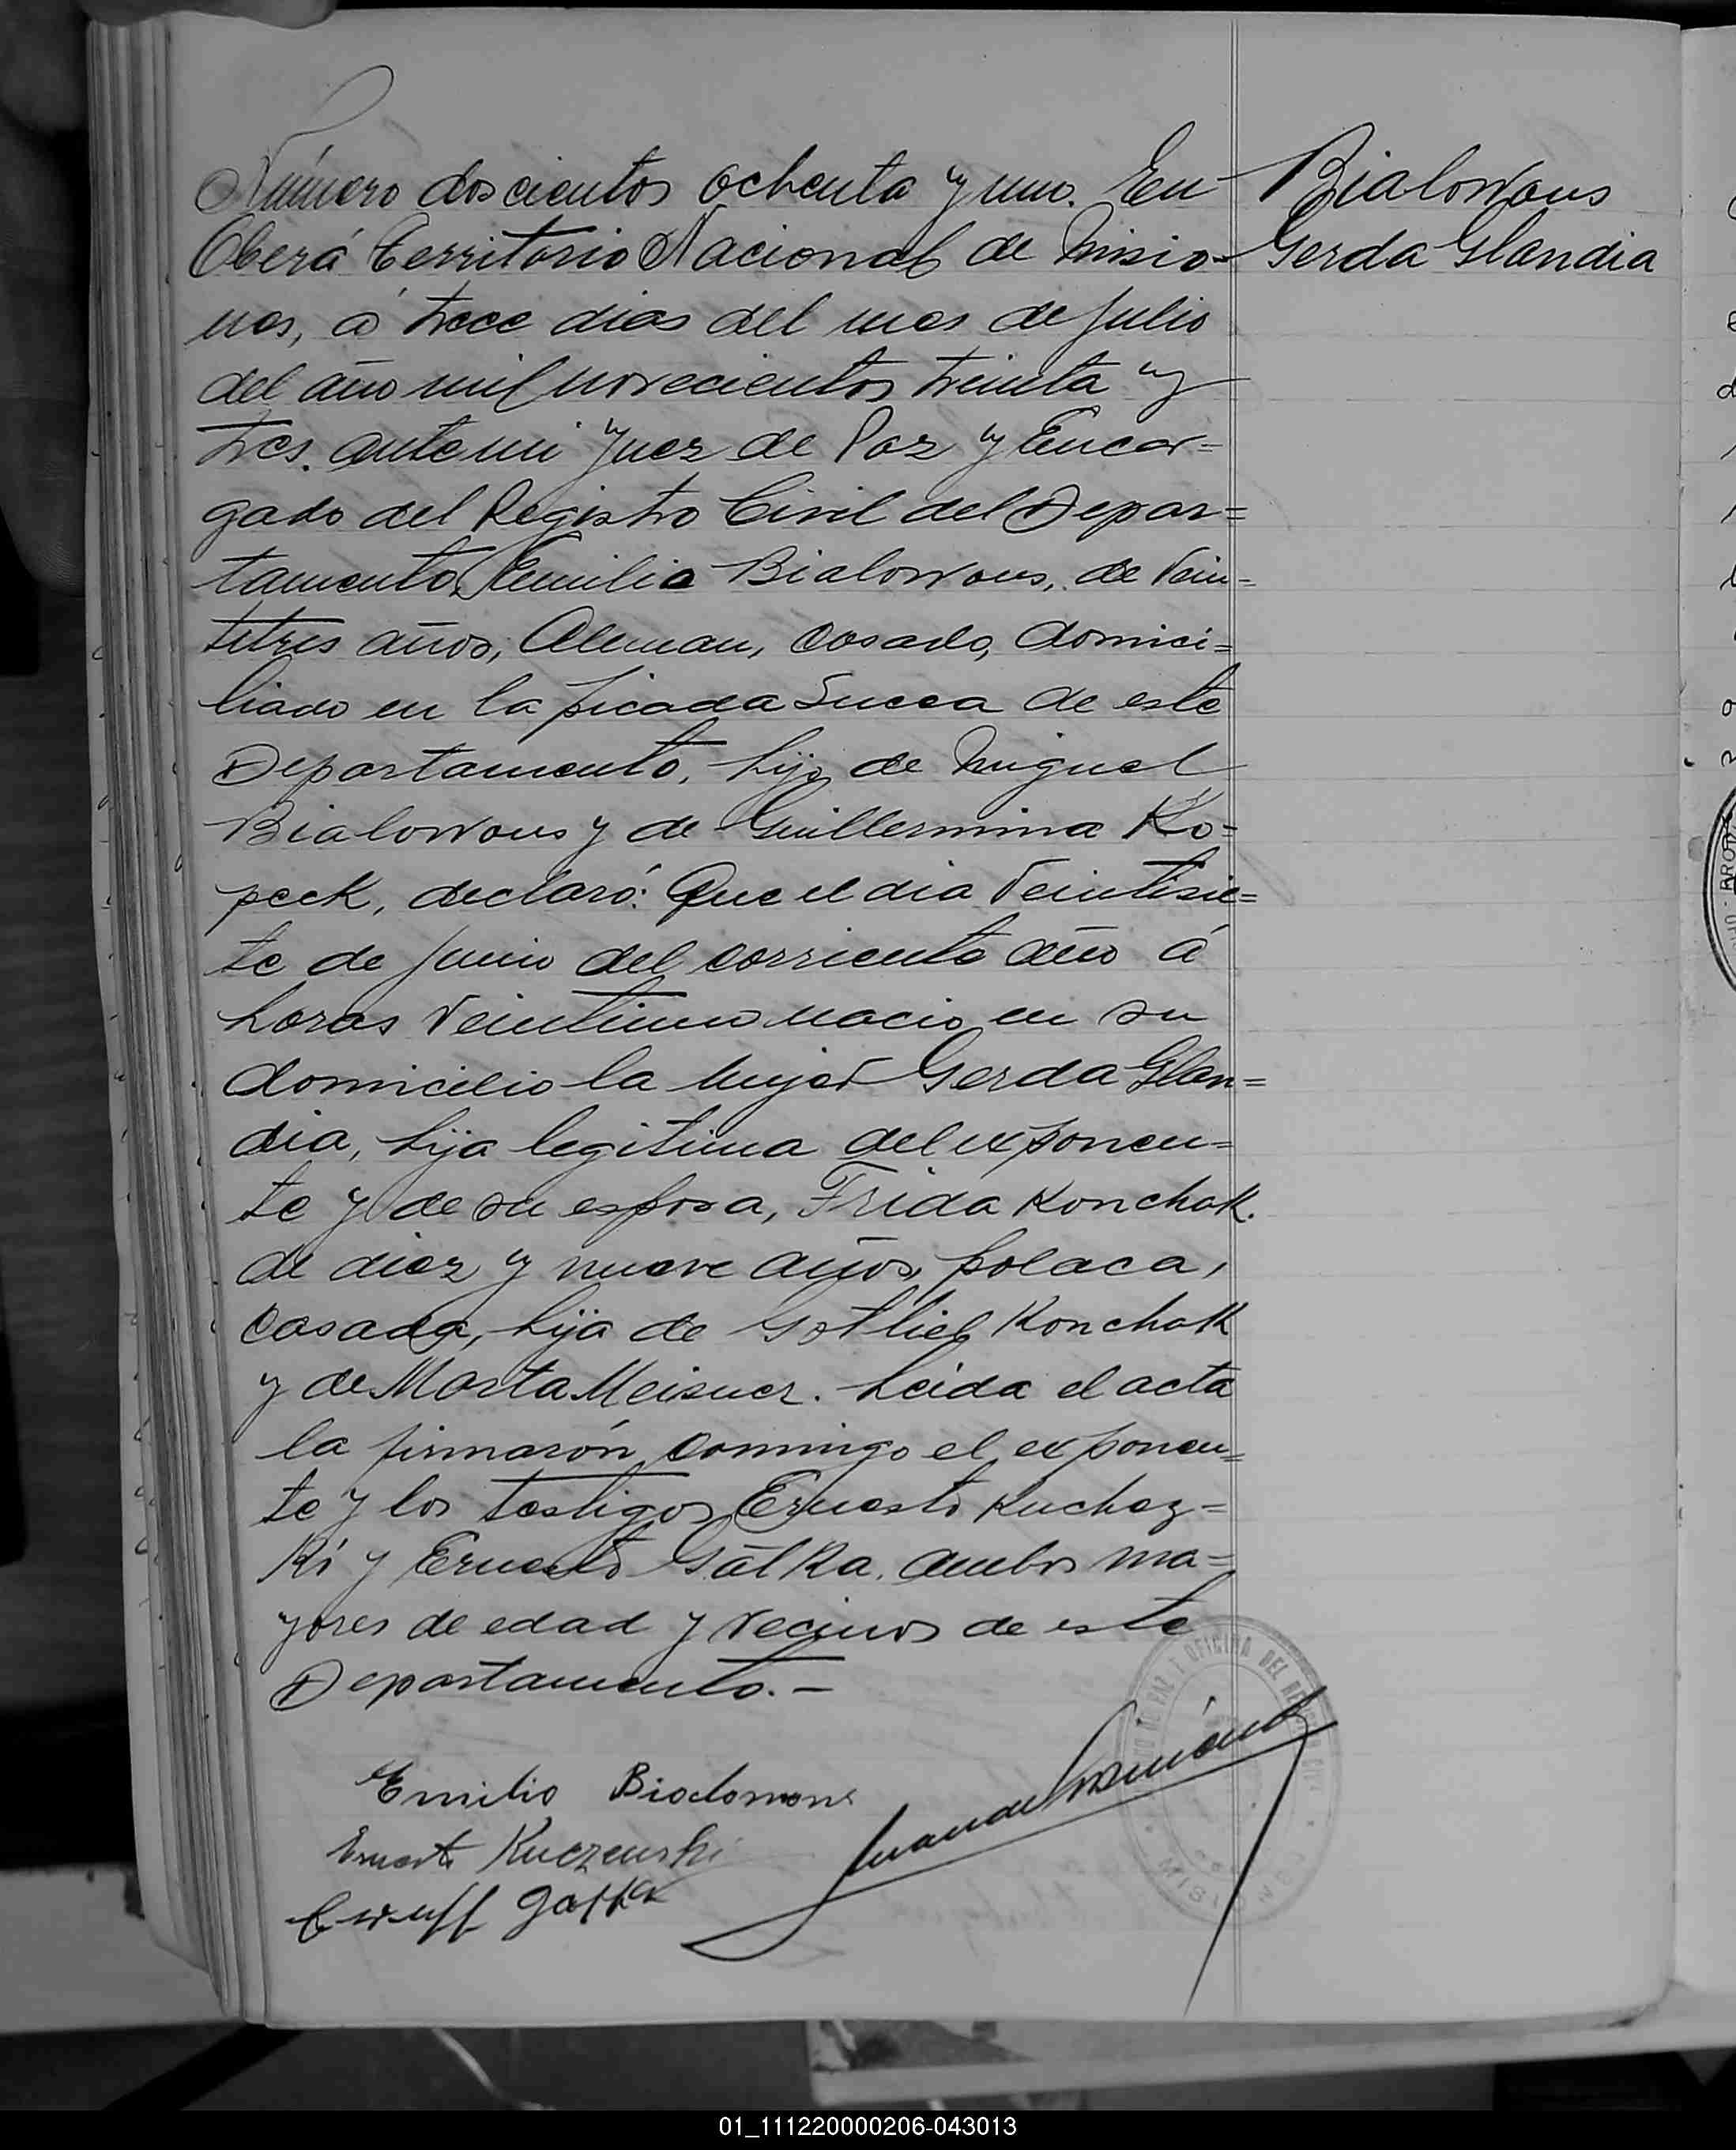 Número doscientos ochenta y uno. En
Oberá Territorio Nacional de Misio-
nes, á trece dias del mes de Julio
del año mil novecientos treinta y
tres. ante mi Juez de Paz y Encar=
gado del Registro Civil del Depar=
tamento, Emilio Bialowous, de Vein-
titres años, Aleman, Casado, domici=
liado en la picada Sueca de este
Departamento, hijo de Miguel
Bialowous y de Guillermina Ko=
peck, declaró: Que el dia Veintisie=
te de Junio del corriente año á
horas Veintiuno nacio en su
domicilio la mujer Gerda Glan=
dia, hija legitima del exponen=
te y de su esposa, Frida Konchak.
de diez y nueve años, polaca,
Casada, hija de Gotlieb Konchak
y de Marta Meisner. Leida el acta
la firmarón conmigo el exponen=
te y los testigos Ernesto Kuchez=
ki y Ernesto Gatka, ambos ma=
yores de edad y vecinos de este
Departamento.-
Bialowous
Gerda Glandia
Emilio
Ernesto Kuczewski
Gatka
OFICINA DEL REGISTRO CIVIL
01_111220000206-043013